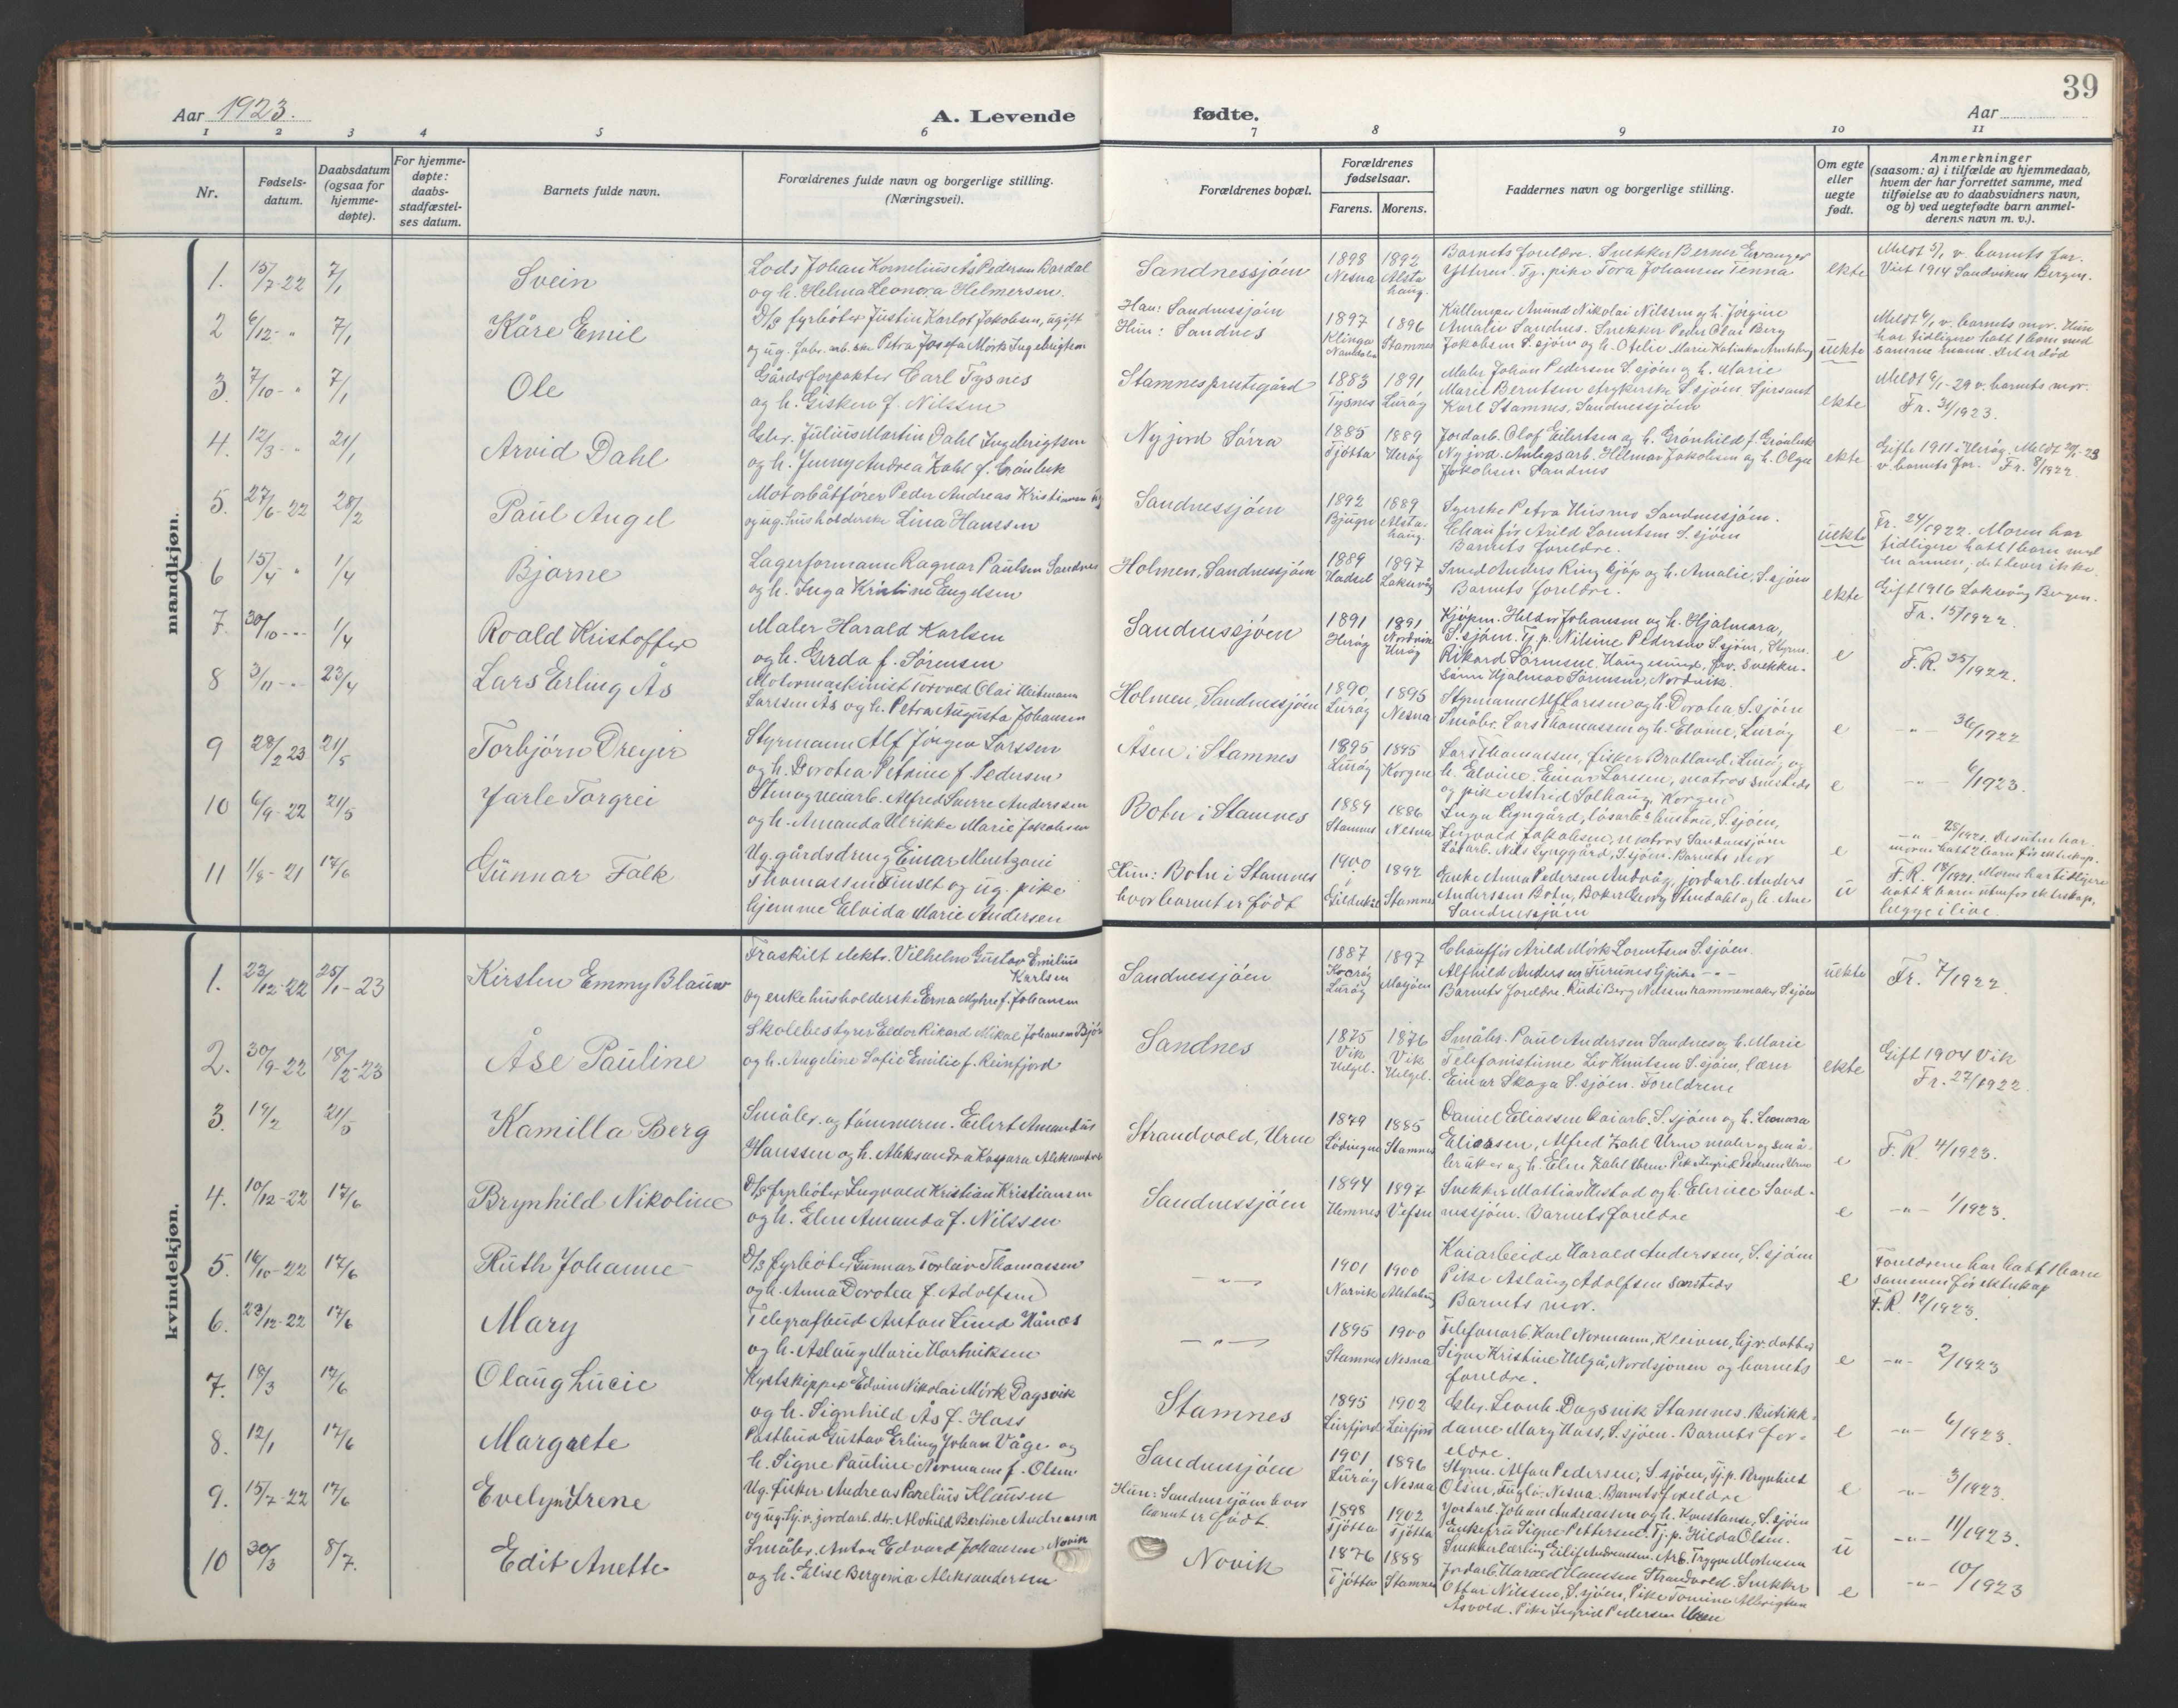 39
Aar 1923.
A. Levende
fødte.
Aar
1 2 3 4 5 6 7 8 9 10 11
Nr.
Fødsels-
datum.
Daabsdatum
(ogsaa for
hjemme-
døpte).
For hjemme-
døpte:
daabs-
stadfæstel-
ses datum.
Barnets fulde navn.
Forældrenes fulde navn og borgerlige stilling.
(Næringsvei).
Forældrenes bopæl.
Forældrenes
fødselsaar.
Farens. Morens.
Faddernes navn og borgerlige stilling.
Om egte
eller
uegte
født.
Anmerkninger
(saasom: a) i tilfælde av hjemmedaab,
hvem der har forrettet samme, med
tilføielse av to daabsvidners navn,
og b) ved uegtefødte barn anmel-
derens navn m. v.).
mandkjøn.
1. 15/7-22 7/1 Svein
Lods Johan Kornelius Ås Pedersen Bardal
og h. Helma Leonora Helmersen.
Sandnessjøen
1898 Nesna 1892 Alstahaug.
Barnets foreldre. Snekker Berner Evanger
Ytteren. Tj. pike Tora Johansen Tenna
ekte
Meldt 5/1 v. barnets far.
Viet 1914 Sandviken Bergen.
2 6/12- " 7/1 Kåre Emil
D/S fyrbøter Justin Karlot Jakobsen, ugift
og ug. fabr. arb. ske Petra Josefa Mørk Ingebrigtsen
Han: Sandnessjøen
Hun: Sandnes
1897 Klinga Namdalen 1896 Stamnes
Kullemper Amund Nikolai Nilssen og h. Jørgine
Amalie Sandnes. Snekker Peder Olai Berg
Jakobsen S.sjøen og h. Otelie Marie Katinka Arntsberg
uekte
Meldt 6/1 v. barnets mor. Hun
har tidligere hatt 1 barn med
samme mann. Det er død
3. 7/10- " 7/1 Ole
Gårdsforpakter Carl Tysnes
og h. Gisken f. Nilssen
Stamnes prestegård
1883 Tysnes 1891 Lurøy
Maler Johan Pedersen S.sjøen og h. Marie
Marie Berntsen strykerske S.sjøen. Sjersant
Karl Stamnes, Sandnessjøen
ekte
Meldt 6/1-29 v. barnets mor.
Fr. 31/1923.
4. 12/3- " 21/1 Arvid Dahl
Gbr. Julius Martin Dahl Ingebrigtsen
og h. Jenny Andrea Zahl f. Grønbek
Nyjord Sørra
1885 Tjøtta 1889 Herøy
Jordarb. Olof Eilertsen og h. Grønhild f. Grønbek
Nyjord. Anlegsarb. Hilmar Jakobsen og h. Olga
Jakobsen Sandnes
ekte
Gifte 1911 i Herøy. Meldt 20/1-23
v. barnets far. Fr. 8/1922.
5. 27/6-22 28/2 Paul Angel
Motorbåtfører Peder Andreas Kristiansen ug
og ug. husholderske Lina Hanssen
Sandnessjøen
1892 Bjugn 1889 Alstahaug.
Syerske Petra Husmo Sandnessjøen.
Chaufför Arild Lorentsen S.sjøen
Barnets foreldre.
uekte
Fr. 24/1922. Moren har
tidligere hatt 1 barn med
en annen; det lever ikke.
6 15/4 " 1/4 Bjarne
Lagerformann Ragnar Paulsen Sandnes
og h. Inga Kristine Engelsen
Holmen, Sandnessjøen
1889 Hadsel 1897 Laksevåg
Smed Anders Ringkjøp og h. Amalie, S.sjøen
Barnets foreldre.
ekte
Gift 1916 Laksvåg Bergen.
Fr. 15/1922.
7. 30/10- " 1/4 Roald Kristoffer
Maler Harald Karlsen
og h. Gerda f. Sørensen
Sandnessjøen
1891 Herøy 1891 Nordvik Herøy
Kjøpm. Hilder Johansen og h. Hjalmara,
S.sjøen. Tj.p. Nilsine Pedersen S.sjøen, Styrm.
Rikard Sørensen Haugesund, frv. snekker
Sønn Hjalmar Sørensen, Nordvik.
e
F.R. 35/1922.
8 3/11- " 23/4 Lars Erling Ås
Motormaskinist Torvald Olai Heitmann
Larssen Ås og h. Petra Augusta Johansen
Holmen, Sandnessjøen
1890 Lurøy 1895 Nesna
Styrmann Alf Larssen og h. Dorotea, S.sjøen
Småbr. Lars Thomassen og h. Elvine, Lurøy
e
-"- 36/1922
9 28/2 23 21/5 Torbjørn Dreyer
Styrmann Alf Jørgen Larssen
og h. Dorotea Petrine f. Pedersen
Åsen i Stamnes
1895 Lurøy 1895 Korgen
Lars Thomassen, fisker Bratland i Lurøy og
h. Elvine. Einar Larssen, matros smsteds
og pike Astrid Solhaug, Korgen
e
-"- 6/1923.
10 6/9-22 21/5 Jarle Torgrei
Sten og veiarb. Alfred Sverre Anderssen
og h. Amanda Ulrikke Marie Jakobsen
Botn i Stamnes
1889 Stamnes 1886 Nesna
Inga Lyngård, løsarb. hustru, S.sjøen,
Ingvald Jakobsen, matros Sandnessjøen
Løsarb. Nils Lynggård, S.sjøen. Barnets mor
e
-"- 28/1922. Desuten har
moren hatt 2 barn før ekteskap.
11 1/9-21 17/6 Gunnar Falk
Ug. gårdsdreng Einar Mentzoni
Thomassen Finset og ug. pike
hjemme Elvida Marie Andersen
Hun: Botn i Stamnes
hvor barnet er født
1900 Gildeskål 1892 Stamnes
Enke Anna Pedersen Andvåg, jordarb. Anders
Anderssen Botn, Baker Georg Almdahl og h. Ane
Sandnessjøen
u
F.R. 18/1921. Moren har tidligere
hatt 2 barn utenfor ekteskap,
begge i live.
kvindekjøn.
1. 23/12-22 25/1-23 Kirsten Emmy Blauw
Fraskilt elektr. Vilhelm Gustav Emilius
Karlsen
og enke husholderske Erna Myhre f. Johansen
Sandnessjøen
1887 Kvarøy Lurøy 1897 Mosjøen
Chaufför Arild Mørk Lorentsen S.sjøen.
Alfhild Andersen Furunes tj.pike -"-
Barnets foreldre. Rudi Berg Nilssen rammemaker S.sjøen
uekte
Fr. 7/1922.
2. 30/9-22 18/2-23 Åse Pauline
Skolebestyrer Eldor Rikard Mikal Johansen Bjør
og h. Angeline Sofie Emilie f. Reinfjord
Sandnes
1875 Vik Helgel. 1876 Vik Helgel.
Småbr. Paul Andersen Sandnes og h. Marie
Telefonistinne Liv Knutsen S.sjøen, lærer
Einar Skaga S.sjøen. Foreldrene
ekte
Gift 1904 Vik
Fr. 27/1922.
3. 19/2 21/5 Kamilla Berg
Småbr. og tømmerm. Eilert Amandus
Hanssen og h. Aleksandra Kaspara Aleksandersen
Strandvold, Urne
1879 Lødingen 1885 Stamnes
Daniel Eliassen kaiarb. S.sjøen og h. Leonora
Eliassen, Alfred Zahl Urne maler og små-
bruker og h. Elen Zahl Urne Pike Ingrid Pedersen Urne
e
F.R. 4/1923.
4. 10/12-22 17/6 Brynhild Nikoline
D/S fyrbøter Ingvald Kristian Kristiansen
og h. Elen Amanda f. Nilssen
Sandnessjøen
1894 Hemnes 1897 Vefsn
Snekker Mattias Hustad og h. Elerice Sand-
nessjøen. Barnets foreldre
e
-"- 1/1923.
5. 16/10-22 17/6 Ruth Johanne
D/S fyrbøter Gunnar Torleiv Thomassen
og h. Anna Dorotea f. Adolfsen
-"-
1901 Narvik 1900 Alstahaug
Kaiarbeider Harald Anderssen, S.sjøen
Pike Aslaug Adolfsen samsteds
Barnets mor.
e
Foreldrene har hatt 1 barn
sammen før ekteskap
F.R. 12/1923.
6. 23/12-22 17/6 Mary
Telegrafbud Anton Lund Hånes
og h. Aslaug Marie Hartviksen
-"-
1895 Stamnes 1900 Nesna
Telefonarb. Karl Normann, Kleiven, hjv. datter
Signe Kristine Helgå, Nordsjonen og barnets
foreldre.
e
-"- 2/1923
7. 18/3 17/6 Olaug Lucie
Kystskipper Edvin Nikolai Mørk Dagsvik
og h. Signhild Ås f. Hass
Stamnes
1895 Leirfjord 1902 Leirfjord
Gbr. Leonh. Dagsvik Stamnes. Butikk-
dame Mary Hass, S.sjøen. Barnets for-
eldre.
e
-"- 6/1923.
8. 12/1 17/6 Margrete
Postbud Gustav Erling Johan Våge og
h. Signe Pauline Normann f. Olsen
Sandnessjøen
1901 Lurøy 1896 Nesna
Styrm. Alfon Pedersen, S.sjøen, Tj.p. Brynhild
Olsen, Fuglø, Nesna. Barnets foreldre
e
-"- 3/1923.
9. 15/7-22 17/6 Evelyn Irene
Ug. fisker Andreas Parelius Klausen
og ug. tj.v. jordarb. dtr. Alvhild Bertine Andreassen
Hun: Sandnessjøen hvor
barnet er født.
1898 Tjøtta 1902 Tjøtta
Jordarb. Johan Andreassen og h. Konstanse, S.sjøen
Enkefru Signe Pettersen. Tj.p. Hilda Olsen.
Snekkerlærling Eilif Andreassen. Arb. Trygve Mortensen
u
-"- 11/1923.
10 30/3 8/7. Edit Anette
Småbr. Anton Edvard Johansen Novik
og h. Elise Bergenia Aleksandersen
Novik
1876 Tjøtta 1888 Stamnes
Jordarb. Harald Hanssen Strandvold. Snekker
Ottar Nilssen, S.sjøen, Pike Tomine Albrigtsen
Åsvold. Pike Ingrid Pedersen Urne
e
-"- 10/1923